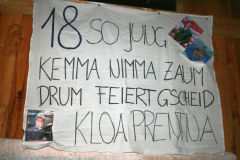 18 SO JUNG
KEMMA NIMMA ZAUM
DRUM FEIERT GSCHEID
KLOA PRENTUA